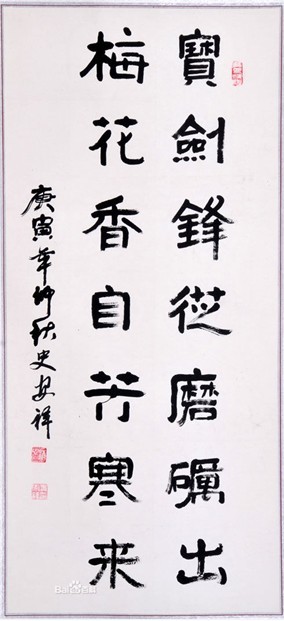 寶劍鋒從磨礪出
梅花香自苦寒来
庚寅年仲秋史安祥
Bai百科